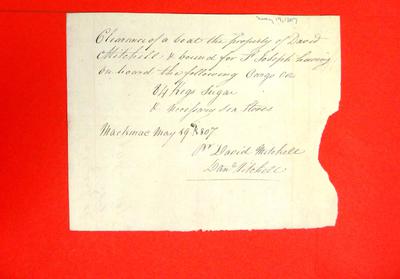 May 19, 1807
Clearance of a boat the property of David
Mitchell & bound for St Joseph having
on board the following Cargo
Kegs Sugar
& Necessary Sea Stores
Mackinac May 19th 1807
Pr David Mitchell
Danl Mitchell